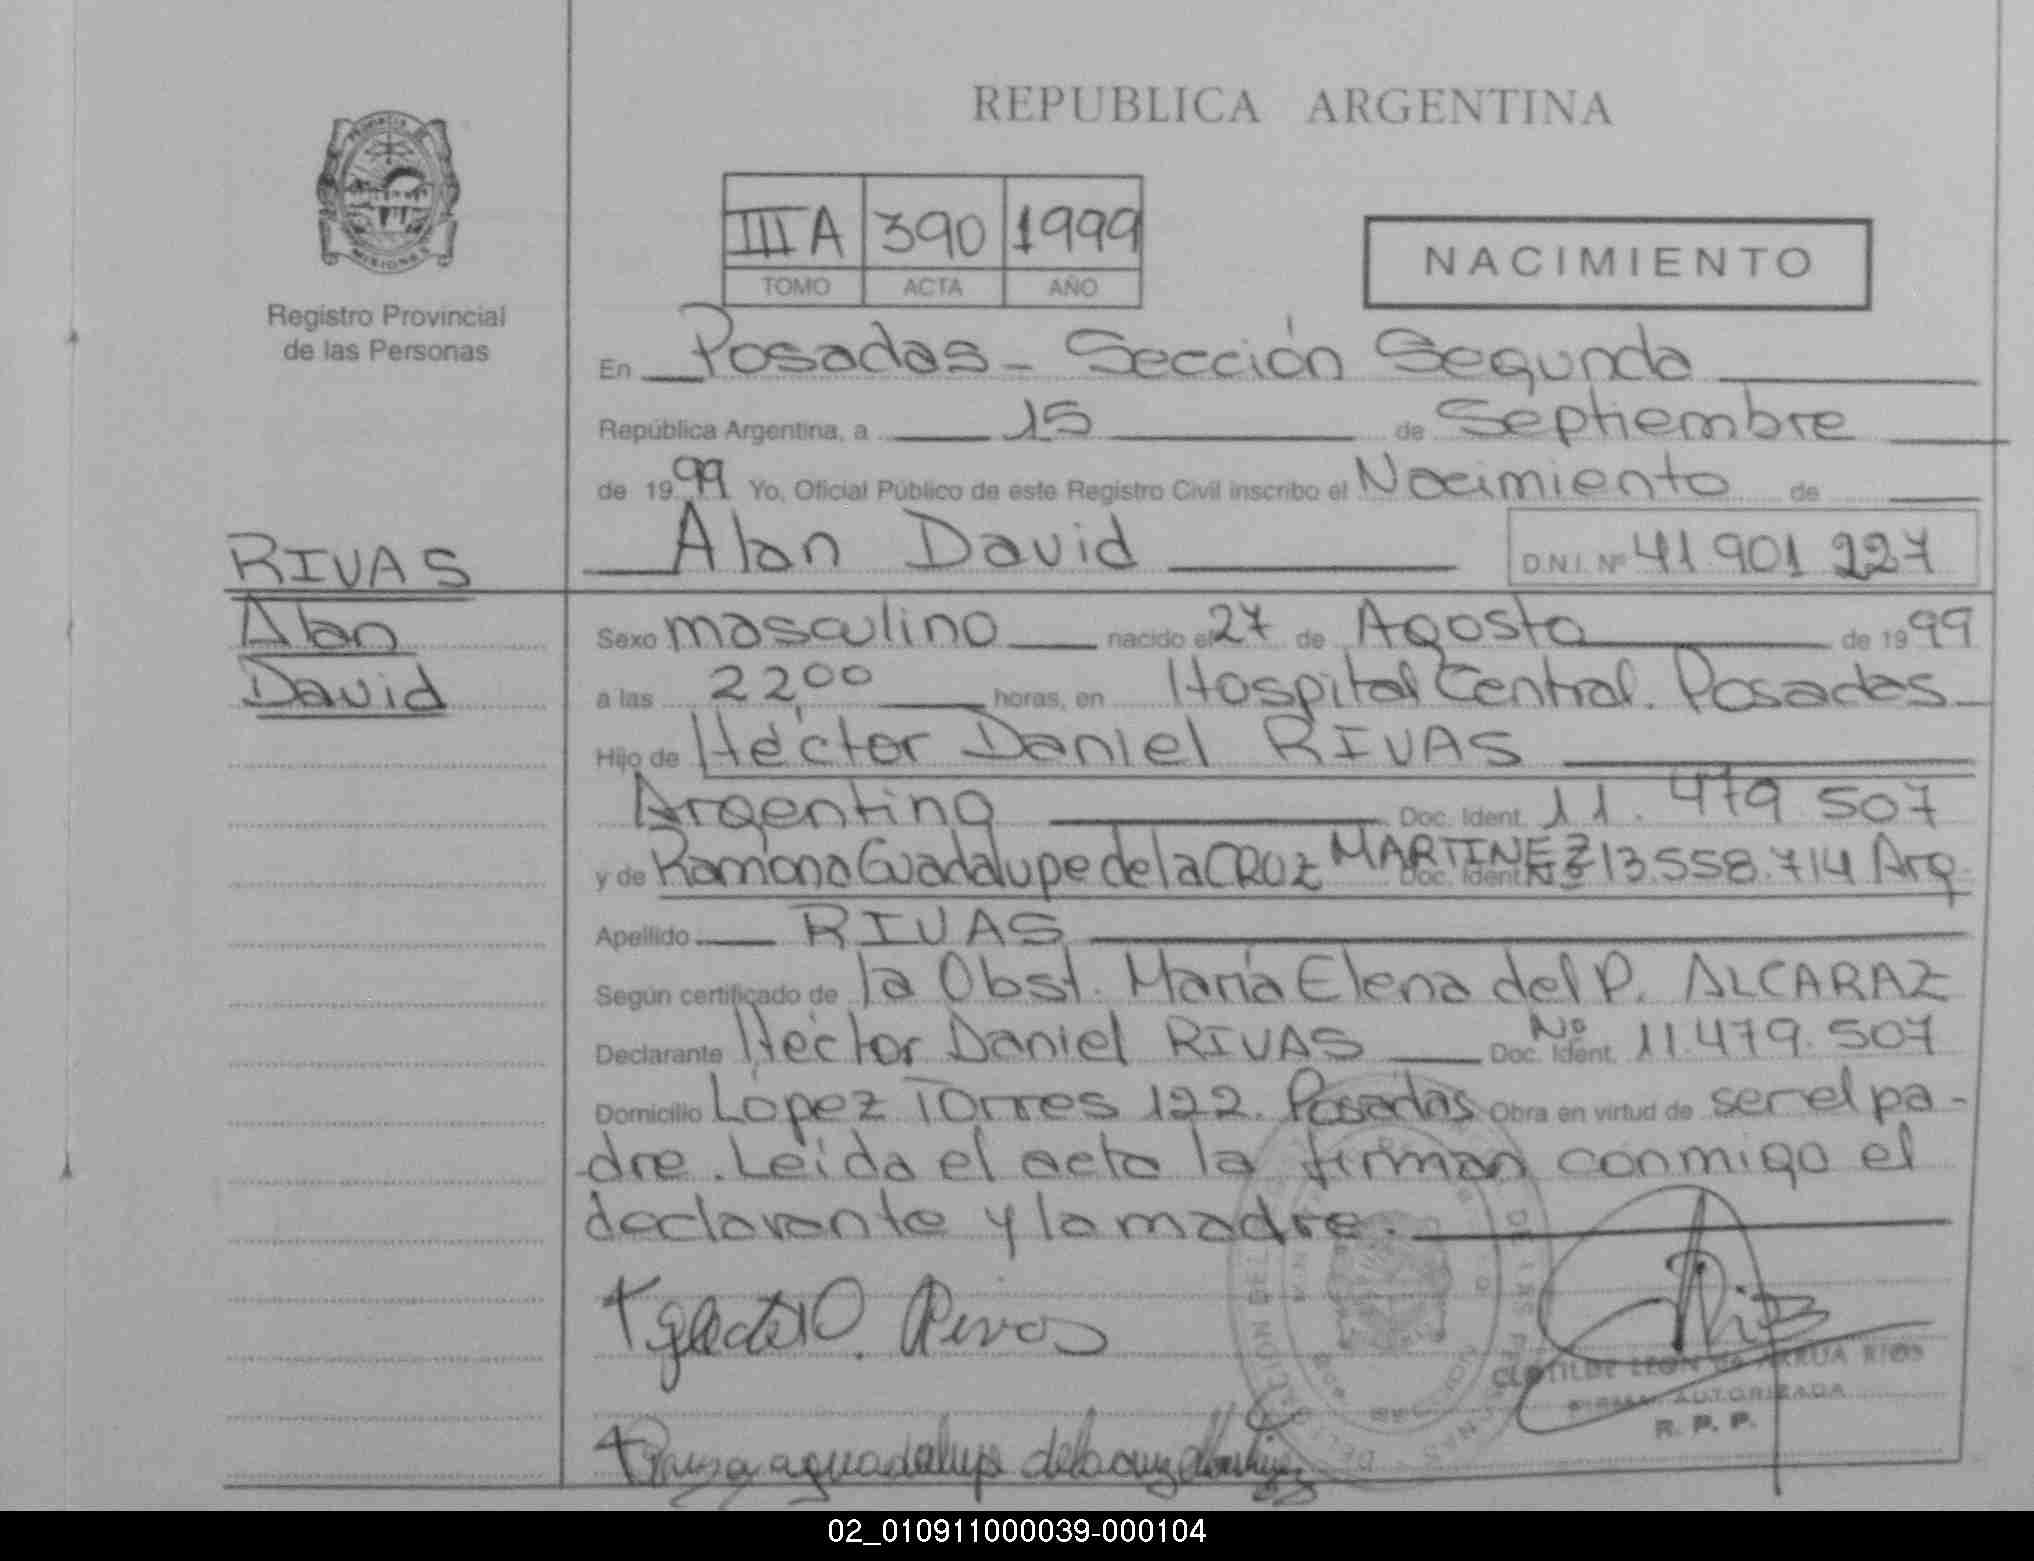 REPUBLICA ARGENTINA
PROVINCIA DE
MISIONES
Registro Provincial
de las Personas
III A 390 1999
TOMO ACTA AÑO
NACIMIENTO
En Posadas - Sección Segunda
República Argentina, a 15 de Septiembre
de 1999 Yo, Oficial Público de este Registro Civil inscribo el Nacimiento de
Alan David D.N.I. Nº 41.901.227
RIVAS
Alan
David
Sexo masculino nacido el 27 de Agosto de 1999
a las 22,00 horas, en Hospital Central. Posadas
Hijo de Héctor Daniel RIVAS
Argentino Doc. Ident. 11.479.507
y de Ramona Guadalupe de la CRUZ MARTINEZ Doc. Ident. Nº 13.558.714 Arg.
Apellido RIVAS
Según certificado de la Obst. María Elena del P. ALCARAZ
Declarante Héctor Daniel RIVAS Doc. Ident. Nº 11.479.507
Domicilio López Torres 122. Posadas Obra en virtud de ser el pa-
dre. Leída el acta la firman conmigo el
declarante y la madre.
Rivas
CLOTILDE LEON de ARRUA RIOS
FIRMA AUTORIZADA
R. P. P.
guadalupe delacruz
02_010911000039-000104